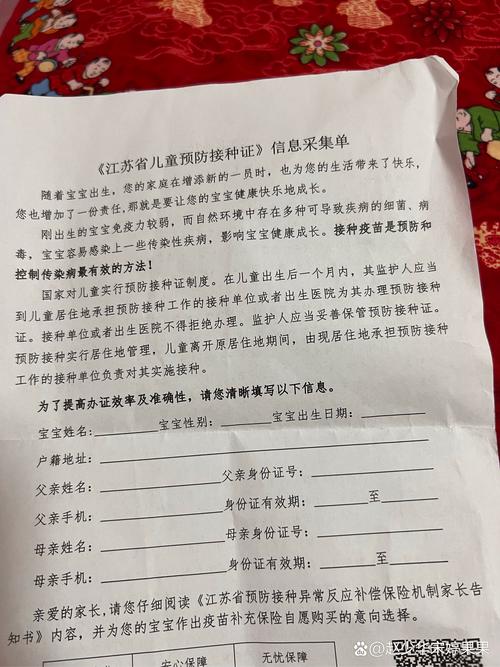 《江苏省儿童预防接种证》信息采集单
随着宝宝出生，您的家庭在增添新的一员时，也为您的生活带来了快乐，
您也增加了一份责任,那就是要让您的宝宝健康快乐地成长。
刚出生的宝宝免疫力较弱，而自然环境中存在多种可导致疾病的细菌、病
毒，宝宝容易感染上一些传染性疾病，影响宝宝健康成长。接种疫苗是预防和
控制传染病最有效的方法！
国家对儿童实行预防接种证制度。在儿童出生后一个月内，其监护人应当
到儿童居住地承担预防接种工作的接种单位或者出生医院为其办理预防接种
证。接种单位或者出生医院不得拒绝办理。监护人应当妥善保管预防接种证。
预防接种实行居住地管理，儿童离开原居住地期间，由现居住地承担预防接种
工作的接种单位负责对其实施接种。
为了提高办证效率及准确性，请您清晰填写以下信息。
宝宝姓名:__________宝宝性别:__________宝宝出生日期:__________
户籍地址:__________
父亲姓名:__________父亲身份证号:__________
父亲手机:__________身份证有效期:__________至__________
母亲姓名:__________母亲身份证号:__________
母亲手机:__________身份证有效期:__________至__________
亲爱的家长,请您仔细阅读《江苏省预防接种异常反应补偿保险机制家长告
知书》内容，并为您的宝宝作出疫苗补充保险自愿购买的意向选择。
安心保障 无忧保障